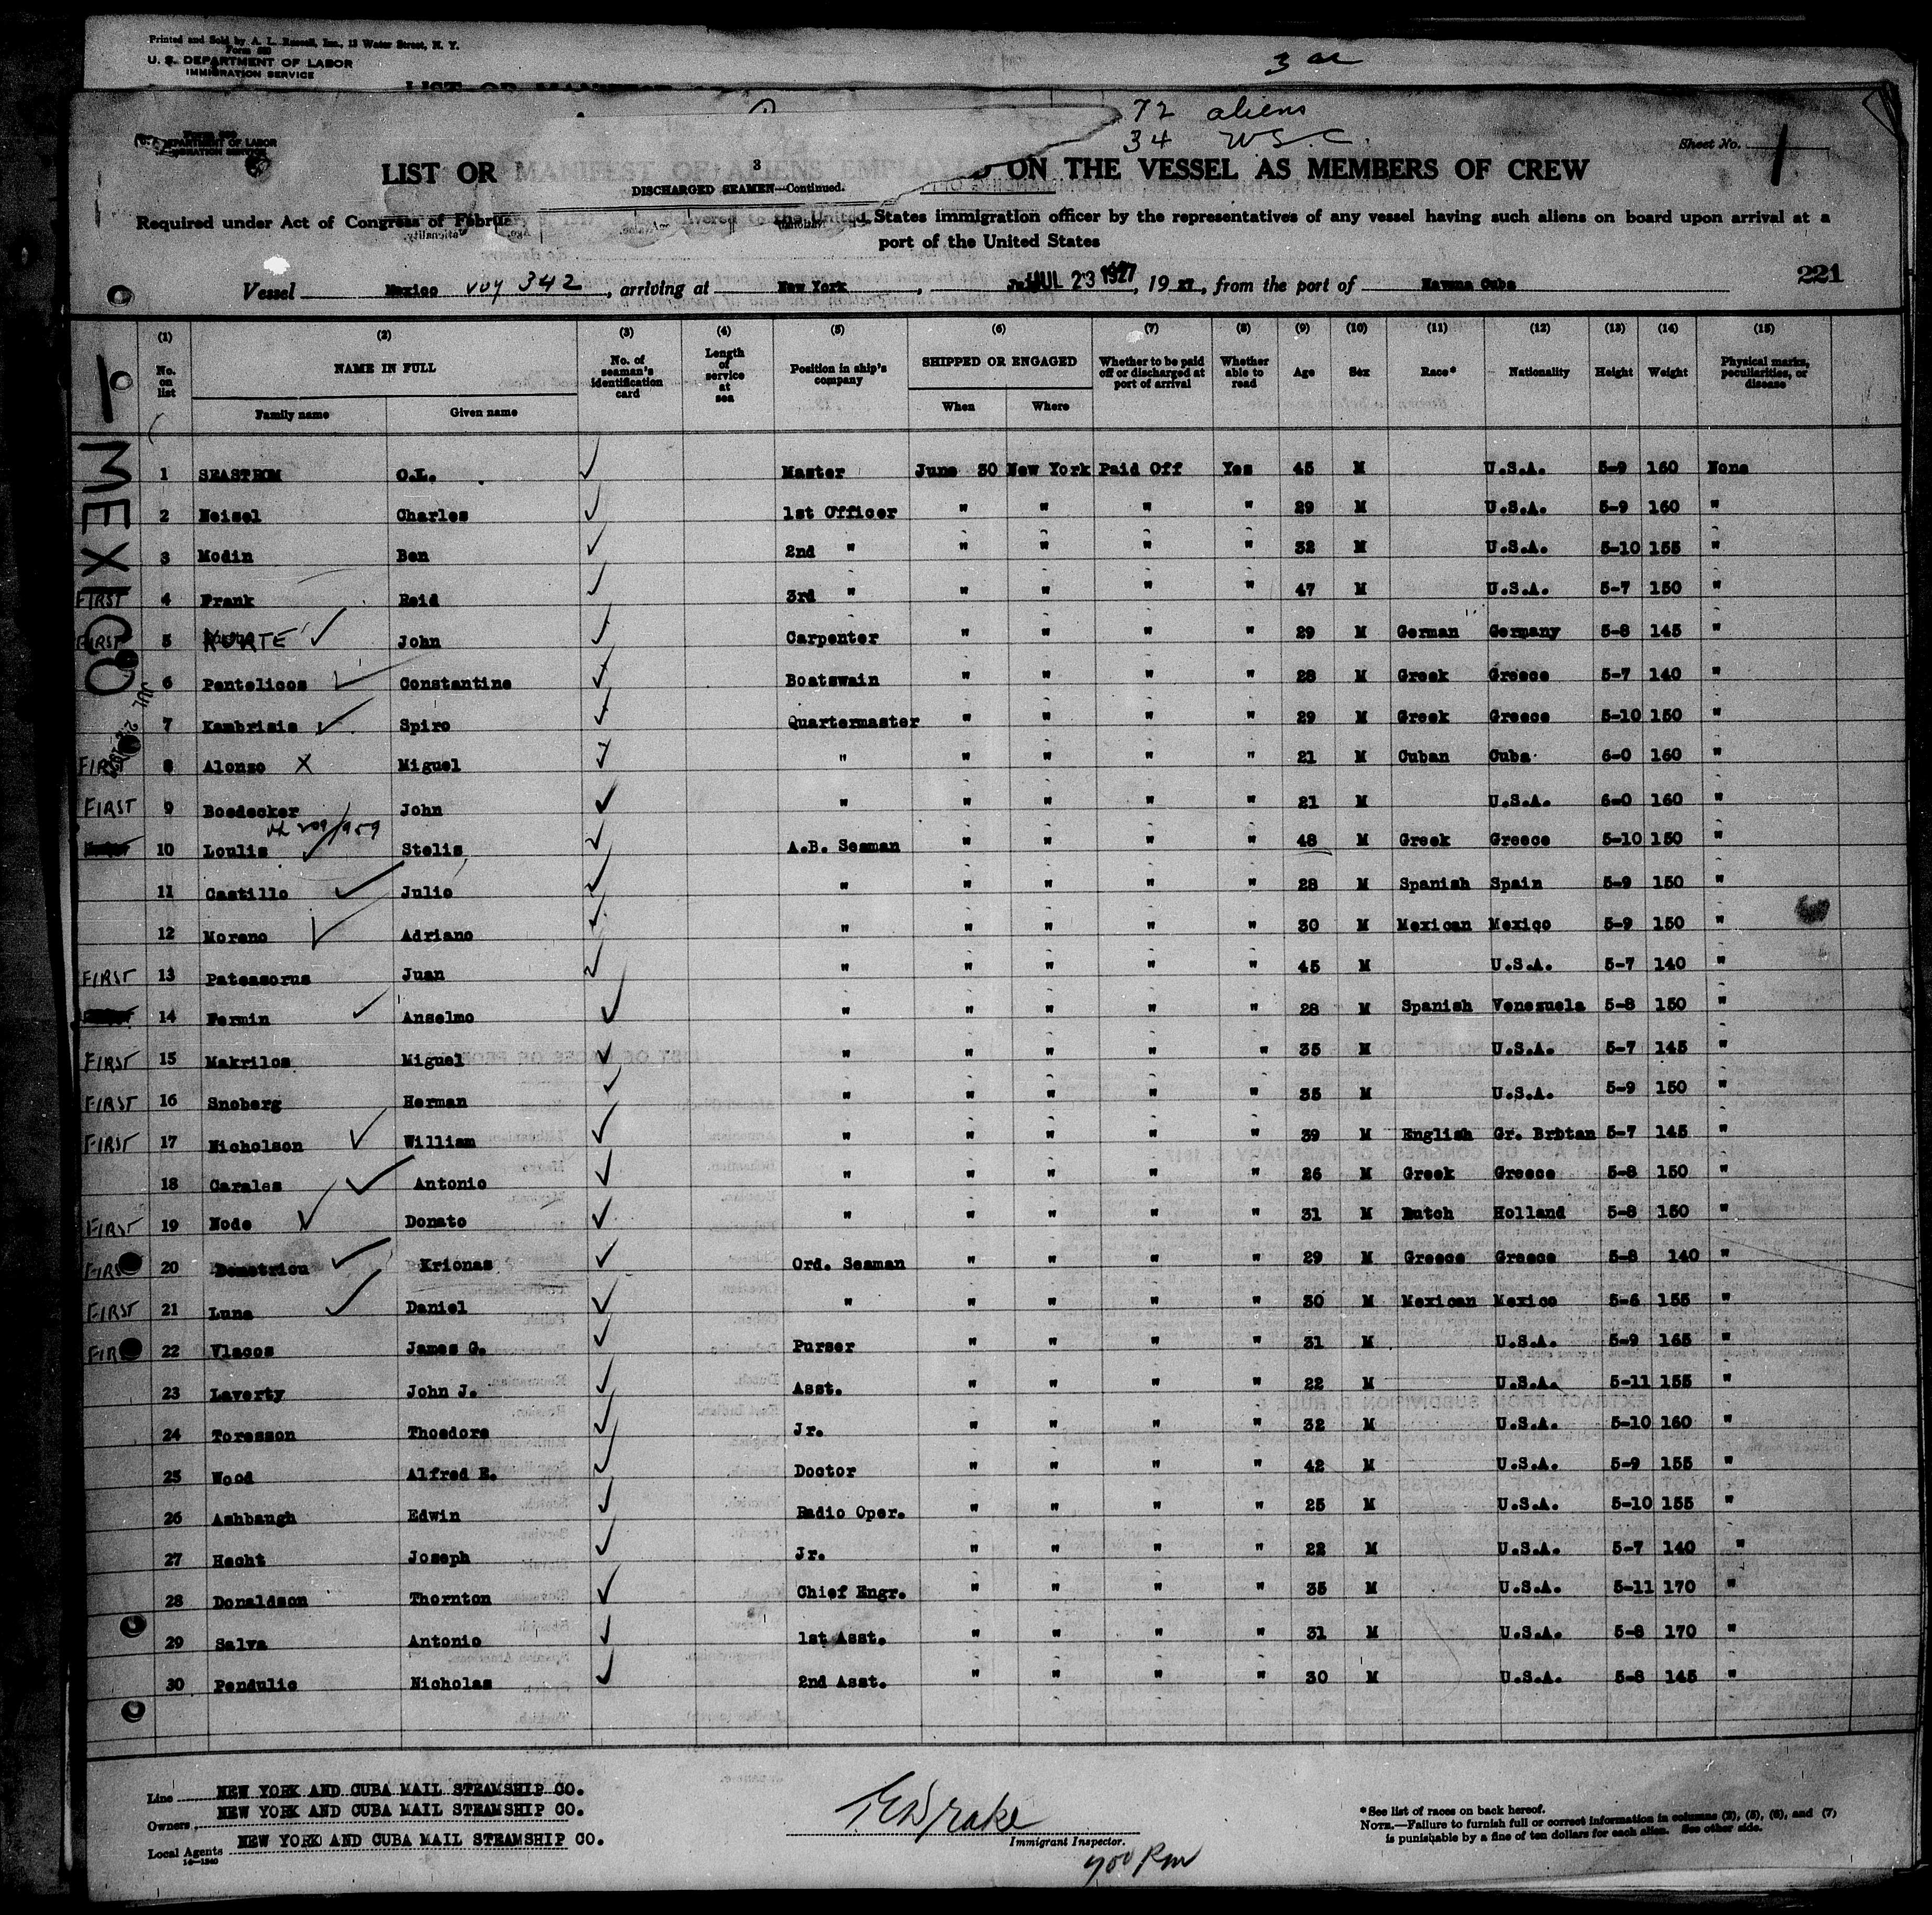 Printed and Sold by A. L. Russell, Inc., 12 Water Street, N. Y.
U. S. DEPARTMENT OF LABOR
IMMIGRATION SERVICE
72 aliens
34
Sheet No. 1
3
LIST OR MANIFEST OF ALIENS ON THE VESSEL AS MEMBERS OF CREW
DISCHARGED SEAMEN—Continued.
Required under Act of Congress of States immigration officer by the representatives of any vessel having such aliens on board upon arrival at a
port of the United States
Vessel Mexico voy 342, arriving at New York, JUL 23 1927, 19 27, from the port of Havana Cuba 221
(1) (2) (3) (4) (5) (6) (7) (8) (9) (10) (11) (12) (13) (14) (15)
No. on list NAME IN FULL No. of seaman's identification card Length of service at sea Position in ship's company SHIPPED OR ENGAGED Whether to be paid off or discharged at port of arrival Whether able to read Age Sex Race* Nationality Height Weight Physical marks, peculiarities, or disease
Family name Given name When Where
MEXICO
1 SEASTROM O.L. Master June 30 New York Paid Off Yes 45 M U.S.A. 5-9 160 None
2 Neisel Charles 1st Officer " " " " 29 M U.S.A. 5-9 160 "
3 Modin Ben 2nd " " " " " 32 M U.S.A. 5-10 155 "
FIRST 4 Frank Reid 3rd " " " " " 47 M U.S.A. 5-7 150 "
FIRST 5 KURTE John Carpenter " " " " 29 M German Germany 5-8 145 "
6 Pentelicos Constantine Boatswain " " " " 28 M Greek Greece 5-7 140 "
7 Kambrisis Spiro Quartermaster " " " " 29 M Greek Greece 5-10 150 "
FIRST 8 Alonso X Miguel " " " " " 21 M Cuban Cuba 6-0 160 "
FIRST 9 Boedecker John " " " " " 21 M U.S.A. 6-0 160 "
10 Loulis Stelis A.B. Seaman " " " " 48 M Greek Greece 5-10 150 "
11 Castillo Julio " " " " " 28 M Spanish Spain 5-9 150 "
12 Moreno Adriano " " " " " 30 M Mexican Mexico 5-9 150 "
FIRST 13 Pateasorus Juan " " " " " 45 M U.S.A. 5-7 140 "
14 Fermin Anselmo " " " " " 28 M Spanish Venezuela 5-8 150 "
FIRST 15 Makrilos Miguel " " " " " 35 M U.S.A. 5-7 145 "
FIRST 16 Snoberg Herman " " " " " 35 M U.S.A. 5-9 150 "
FIRST 17 Nicholson William " " " " " 39 M English Gr. Brbtan 5-7 145 "
18 Carales Antonio " " " " " 26 M Greek Greece 5-8 150 "
FIRST 19 Node Donato " " " " " 31 M Dutch Holland 5-8 150 "
FIRST 20 Demetriou Krionas Ord. Seaman " " " " 29 M Greece Greece 5-8 140 "
FIRST 21 Luna Daniel " " " " " 30 M Mexican Mexico 5-6 155 "
FIRST 22 Vlacos James G. Purser " " " " 31 M U.S.A. 5-9 165 "
23 Laverty John J. Asst. " " " " 22 M U.S.A. 5-11 155 "
24 Toresson Thoedore Jr. " " " " 32 M U.S.A. 5-10 160 "
25 Wood Alfred E. Doctor " " " " 42 M U.S.A. 5-9 155 "
26 Ashbaugh Edwin Radio Oper. " " " " 25 M U.S.A. 5-10 155 "
27 Hecht Joseph Jr. " " " " 22 M U.S.A. 5-7 140 "
28 Donaldson Thornton Chief Engr. " " " " 35 M U.S.A. 5-11 170 "
29 Salva Antonio 1st Asst. " " " " 31 M U.S.A. 5-8 170 "
30 Pendulic Nicholas 2nd Asst. " " " " 30 M U.S.A. 5-8 145 "
Line NEW YORK AND CUBA MAIL STEAMSHIP CO.
Owners NEW YORK AND CUBA MAIL STEAMSHIP CO.
Local Agents NEW YORK AND CUBA MAIL STEAMSHIP CO.
Drake
Immigrant Inspector.
*See list of races on back hereof.
NOTE.—Failure to furnish full or correct information in columns (2), (5), (6), and (7)
is punishable by a fine of ten dollars for each alien. See other side.